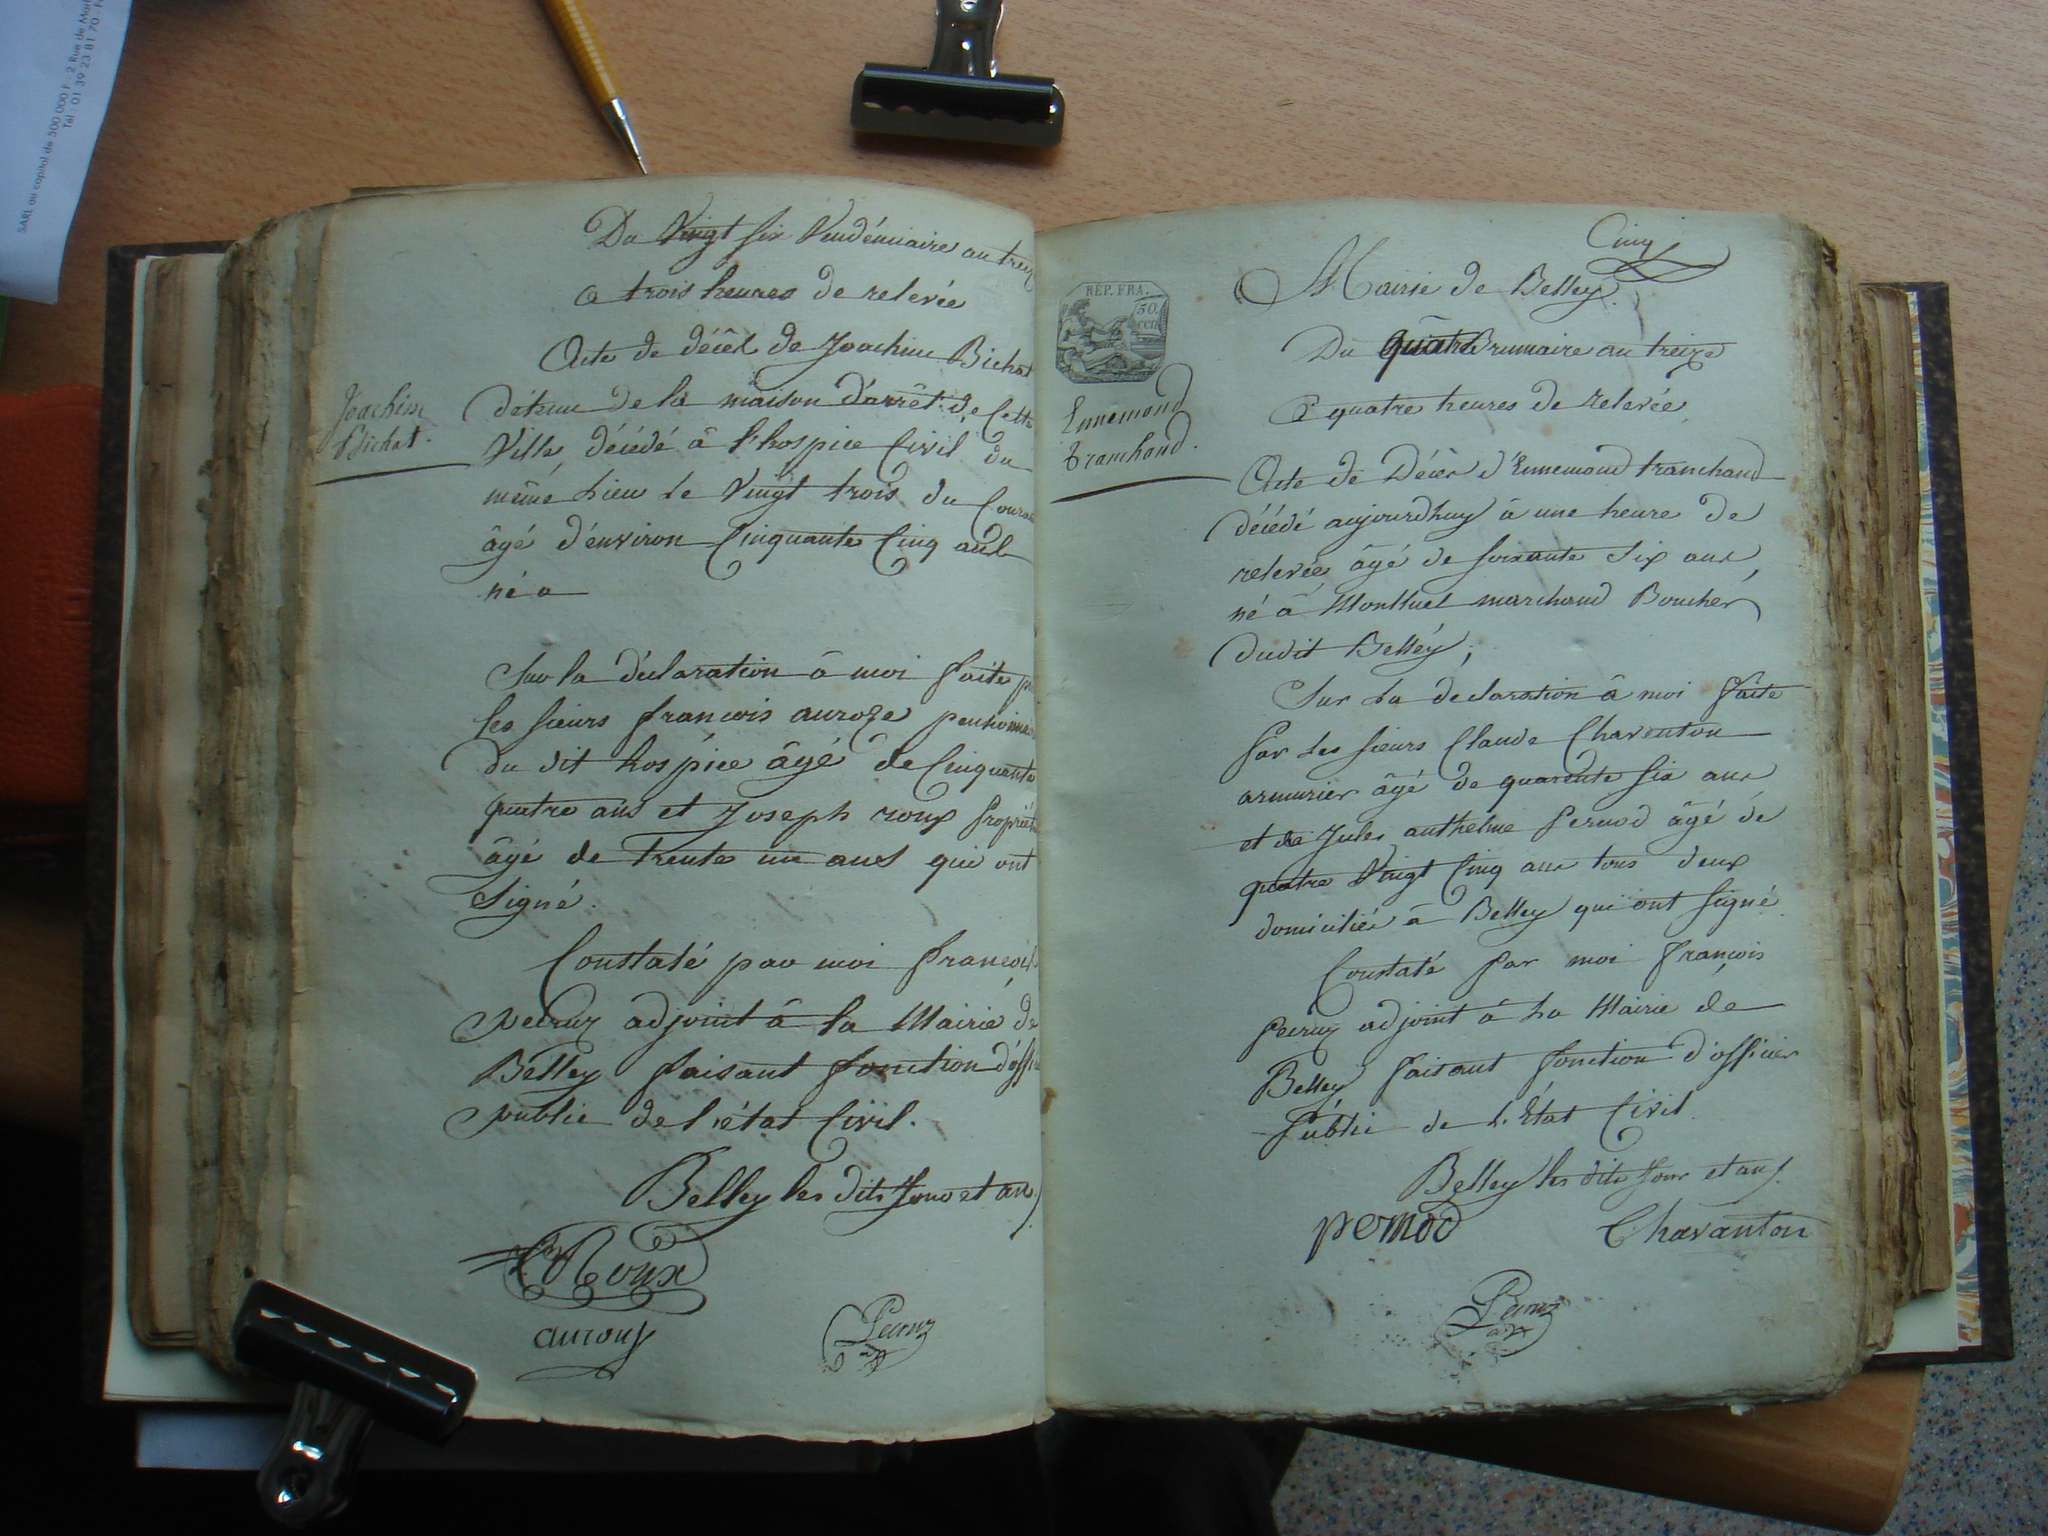 SARL au capital de 500 000 F - 2 Rue de
Tél : 01 39 23 81 70 -
Du Vingt six Vendémiaire an treiz
a trois heures de relevée
Acte de décès de Joachim Bichat
détenu de la maison d'arrêt de Cette
Ville, décédé â l'hospice Civil du
même Lieu le Vingt trois du Couran
âgé d'environ Cinquante Cinq ans
né a
Joachim
Bichat.
Sur la déclaration â moi faite p
les sieurs françois auroze pensionnai
du dit hospice âgé de Cinquante
quatre ans et Joseph roux propriét
âgé de trente un ans qui ont
signé.
Constaté par moi françois
pecruz adjoint â la Mairie de
Belley faisant fonction d'offi
public de l'état Civil.
Belley les dits Jour et an.
Roux
aurouz
Pecruz
Cinq
Mairie de Belley.
REP. FRA.
50.
CEN
Du quatre Brumaire an treize
a quatre heures de relevée
Ennemond
Tranchand.
Acte de Décès d'Ennemond tranchand
décédé aujourdhuy â une heure de
relevée âgé de soixante six ans,
né â Montluel marchand Boucher
dudit Belley;
Sur La declaration â moi faite
par Les sieurs Claude Charenton
armurier âgé de quarente six ans
et de Jules anthelme pernod âgé de
quatre Vingt Cinq ans tous deux
domiciliés â Belley qui ont signé
Constaté par moi françois
pecruz adjoint â La Mairie de
Belley faisant fonction d'officier
Public de L'Etat Civil.
Belley les dits Jour et an.
pernod Chavanton
Pecruz